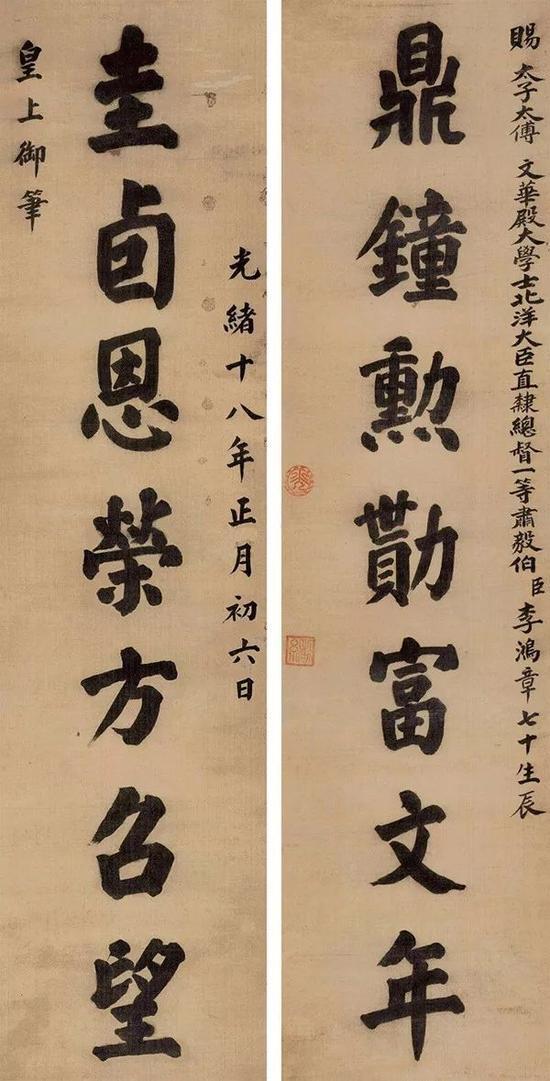 賜 太子太傅 文華殿大學士北洋大臣直隸總督一等肅毅伯臣李鴻章七十生辰
鼎鐘勳勩富文年
光緒十八年正月初六日
圭卣恩榮方召望
皇上御筆